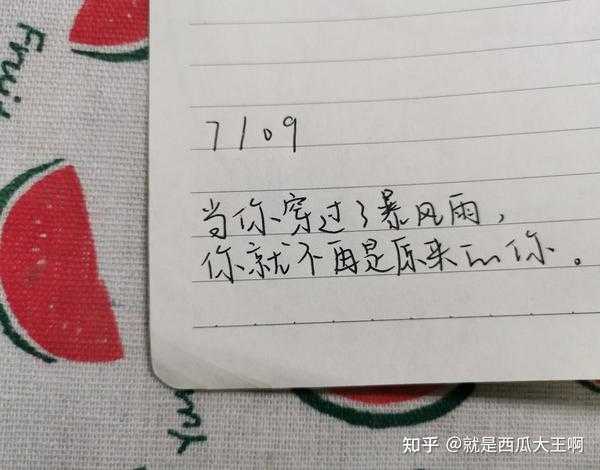 Frui
7109
当你穿过了暴风雨，
你就不再是原来的你。
知乎 @就是西瓜大王啊